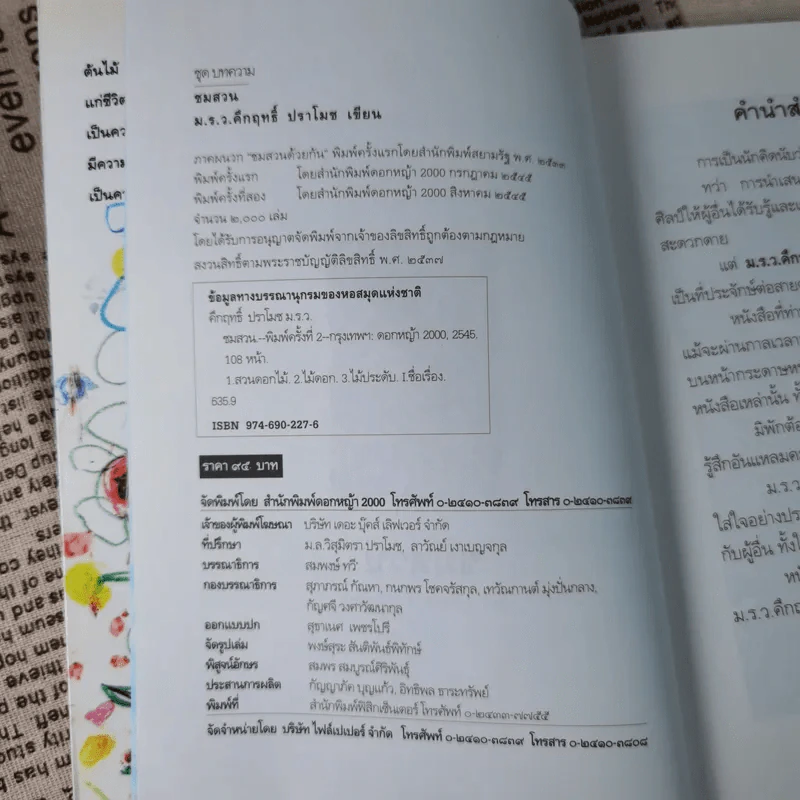 ต้นไม้
แก่ชีวิต
เป็นคว
มีความ
เป็นคว
ชุด บทความ
ชมสวน
ม.ร.ว.คึกฤทธิ์ ปราโมช เขียน
ภาคผนวก "ชมสวนด้วยกัน" พิมพ์ครั้งแรกโดยสำนักพิมพ์สยามรัฐ พ.ศ.
พิมพ์ครั้งแรก โดยสำนักพิมพ์ดอกหญ้า 2000 กรกฎาคม ๒๕๔๕
พิมพ์ครั้งที่สอง โดยสำนักพิมพ์ดอกหญ้า 2000 สิงหาคม ๒๕๔๕
จำนวน ๒,๐๐๐ เล่ม
โดยได้รับการอนุญาตจัดพิมพ์จากเจ้าของลิขสิทธิ์ถูกต้องตามกฎหมาย
สงวนสิทธิ์ตามพระราชบัญญัติลิขสิทธิ์ พ.ศ. ๒๕๓๗
ข้อมูลทางบรรณานุกรมของหอสมุดแห่งชาติ
คึกฤทธิ์ ปราโมช ม.ร.ว.
ชมสวน.--พิมพ์ครั้งที่ 2--กรุงเทพฯ: ดอกหญ้า 2000, 2545.
108 หน้า.
1.สวนดอกไม้. 2.ไม้ดอก. 3.ไม้ประดับ. I.ชื่อเรื่อง.
635.9
ISBN 974-690-227-6
ราคา ๙๕ บาท
จัดพิมพ์โดย สำนักพิมพ์ดอกหญ้า 2000 โทรศัพท์ ๐-๒๔๑๐-๓๘๓๙ โทรสาร ๐-๒๔๑๐-๓๘๓๙
เจ้าของผู้พิมพ์โฆษณา บริษัท เดอะ บุ๊คส์ เลิฟเวอร์ จำกัด
ที่ปรึกษา ม.ล.วิสุมิตรา ปราโมช, ลาวัณย์ เงาเบญจกุล
บรรณาธิการ สมพงษ์ ทวี
กองบรรณาธิการ สุภาภรณ์ กัณหา, กนกพร โชคจรัสกุล, เทวัณกานต์ มุ่งปั่นกลาง,
กัญศจี วงศาวัฒนากุล
ออกแบบปก สุธาเนศ เพชรโปรี
จัดรูปเล่ม พงษ์สุระ สันติพันธ์พิทักษ์
พิสูจน์อักษร สมพร สมบูรณ์ศิริพันธุ์
ประสานการผลิต กัญญาภัค บุญแก้ว, อิทธิพล ธาระทรัพย์
พิมพ์ที่ สำนักพิมพ์ฟิสิกเซ็นเตอร์ โทรศัพท์ ๐-๒๔๓๓-๗๗๕๕
จัดจำหน่ายโดย บริษัท ไฟล์เปเปอร์ จำกัด โทรศัพท์ ๐-๒๔๑๐-๓๘๓๙ โทรสาร ๐-๒๔๑๐-๓๘๐๘
คำนำสำ
การเป็นนักคิดนับว่
ทว่า การนำเสน
ศิลป์ให้ผู้อื่นได้รับรู้และเ
สะดวกดาย
แต่ ม.ร.ว.คึกฤ
เป็นที่ประจักษ์ต่อสายต
หนังสือที่ท่า
แม้จะผ่านกาลเวลา
บนหน้ากระดาษห
หนังสือเหล่านั้น ทั้
มิพักต้อ
รู้สึกอันแหลมค
ม.ร.ว.
ใส่ใจอย่างปร
กับผู้อื่น ทั้งใ
หนั
ม.ร.ว.คึกฤ